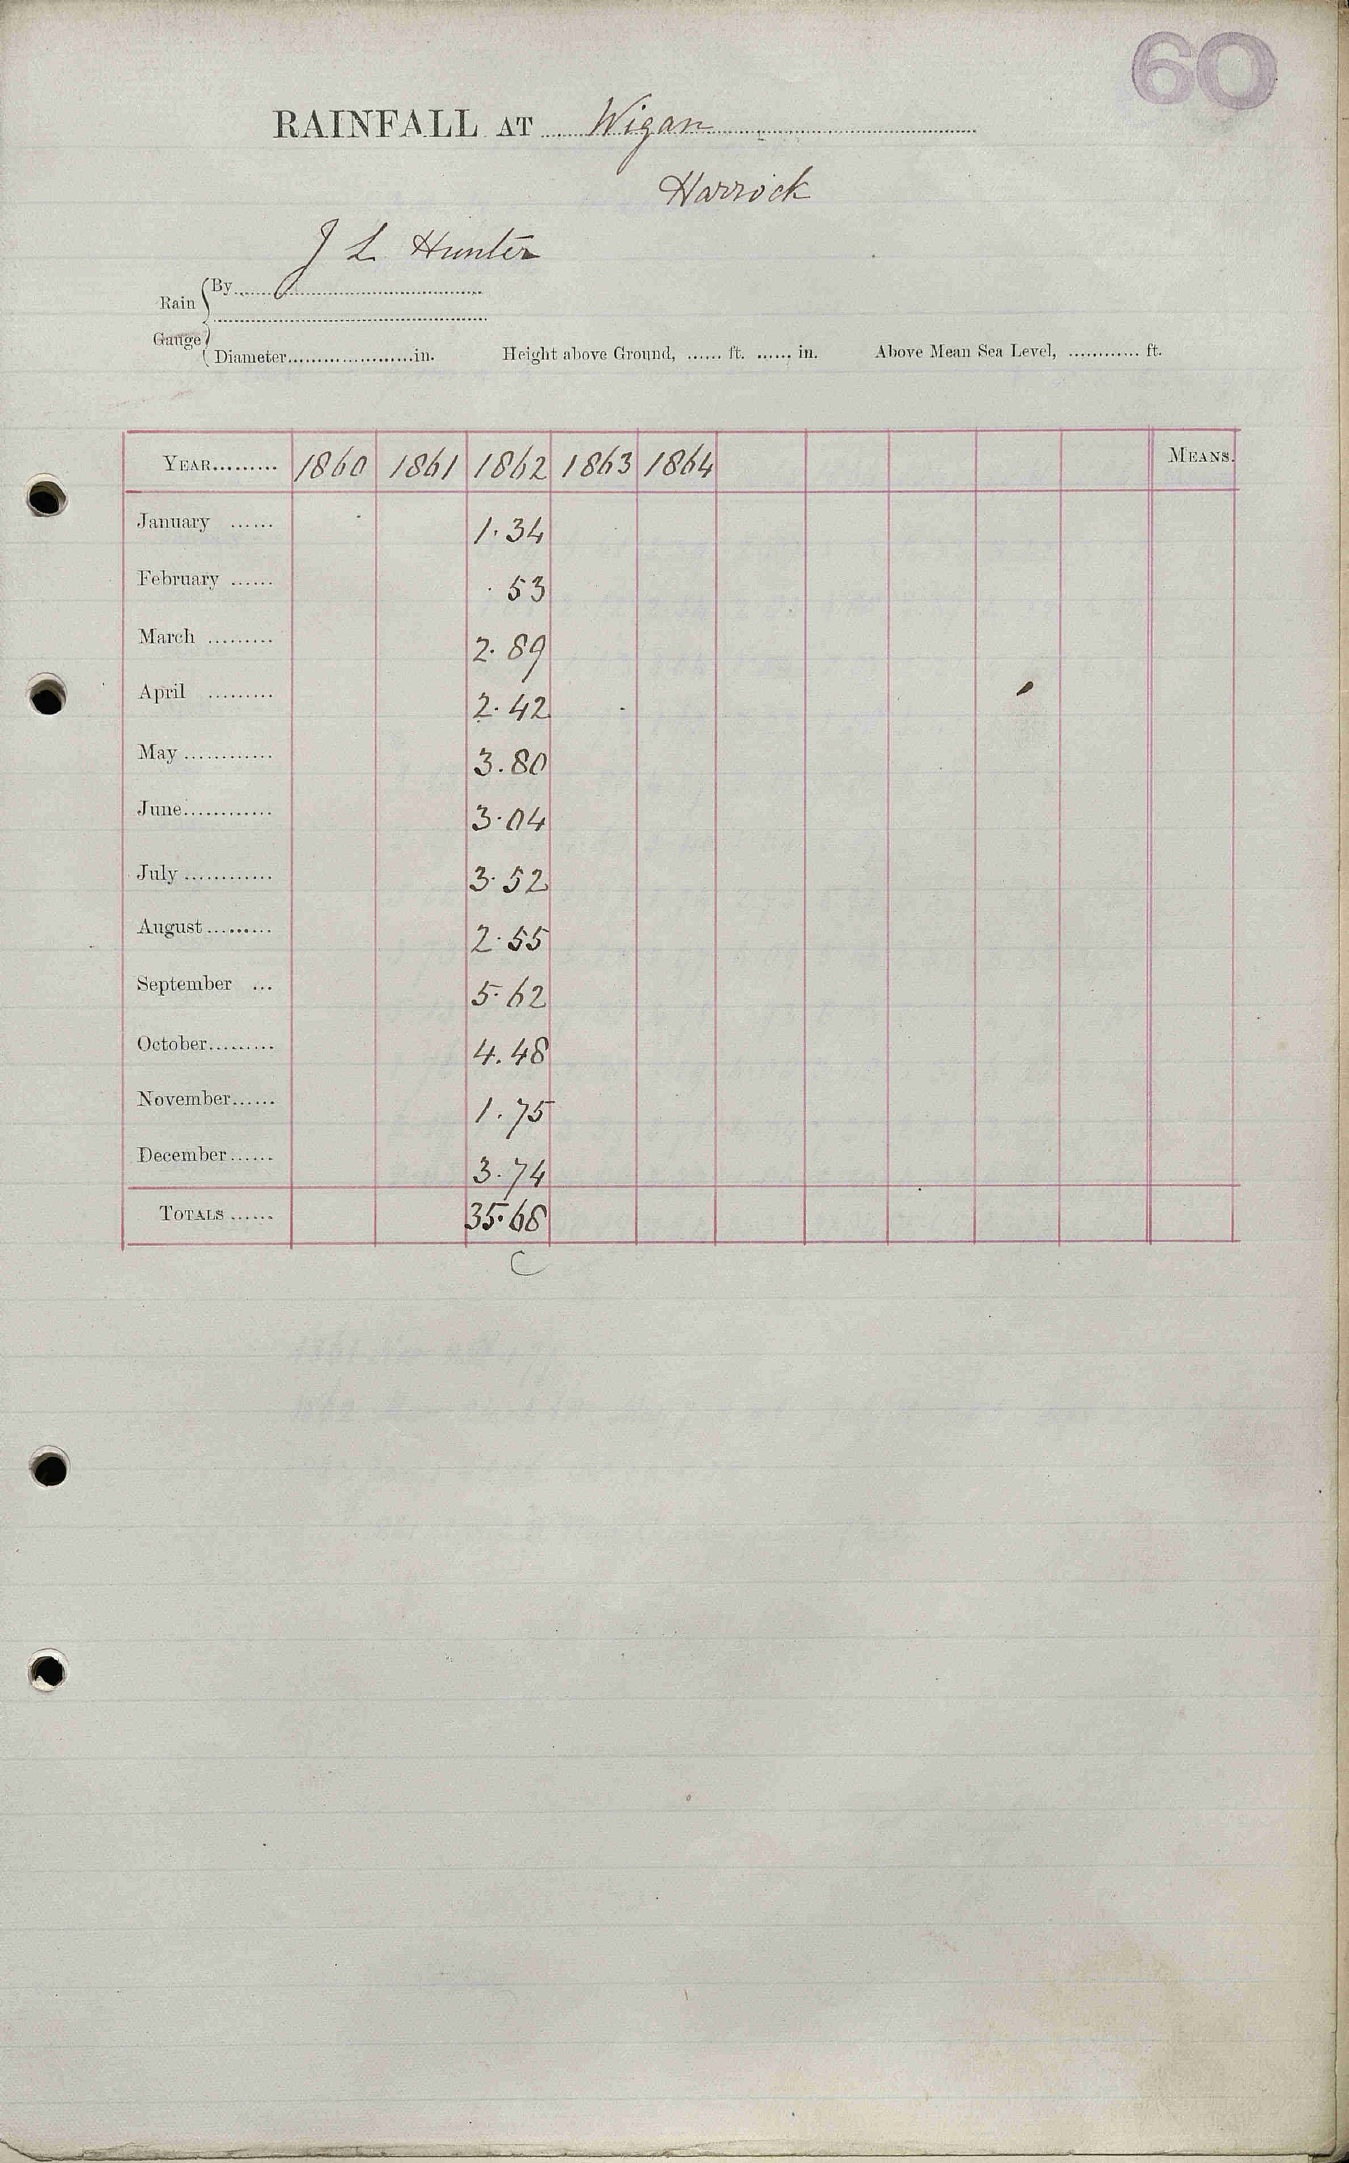 60
RAINFALL AT Wigan
Harrock
J L Hunter
Rain Gauge
By
Diameter.....................in. Height above Ground, ...... ft. ...... in. Above Mean Sea Level, ............ ft.
YEAR......... 1860 1861 1862 1863 1864 MEANS.
January ...... 1.34
February ...... .53
March ......... 2.89
April ......... 2.42
May ............ 3.80
June............ 3.04
July ............ 3.52
August ......... 2.55
September ... 5.62
October......... 4.48
November...... 1.75
December ...... 3.74
TOTALS ...... 35.68
C